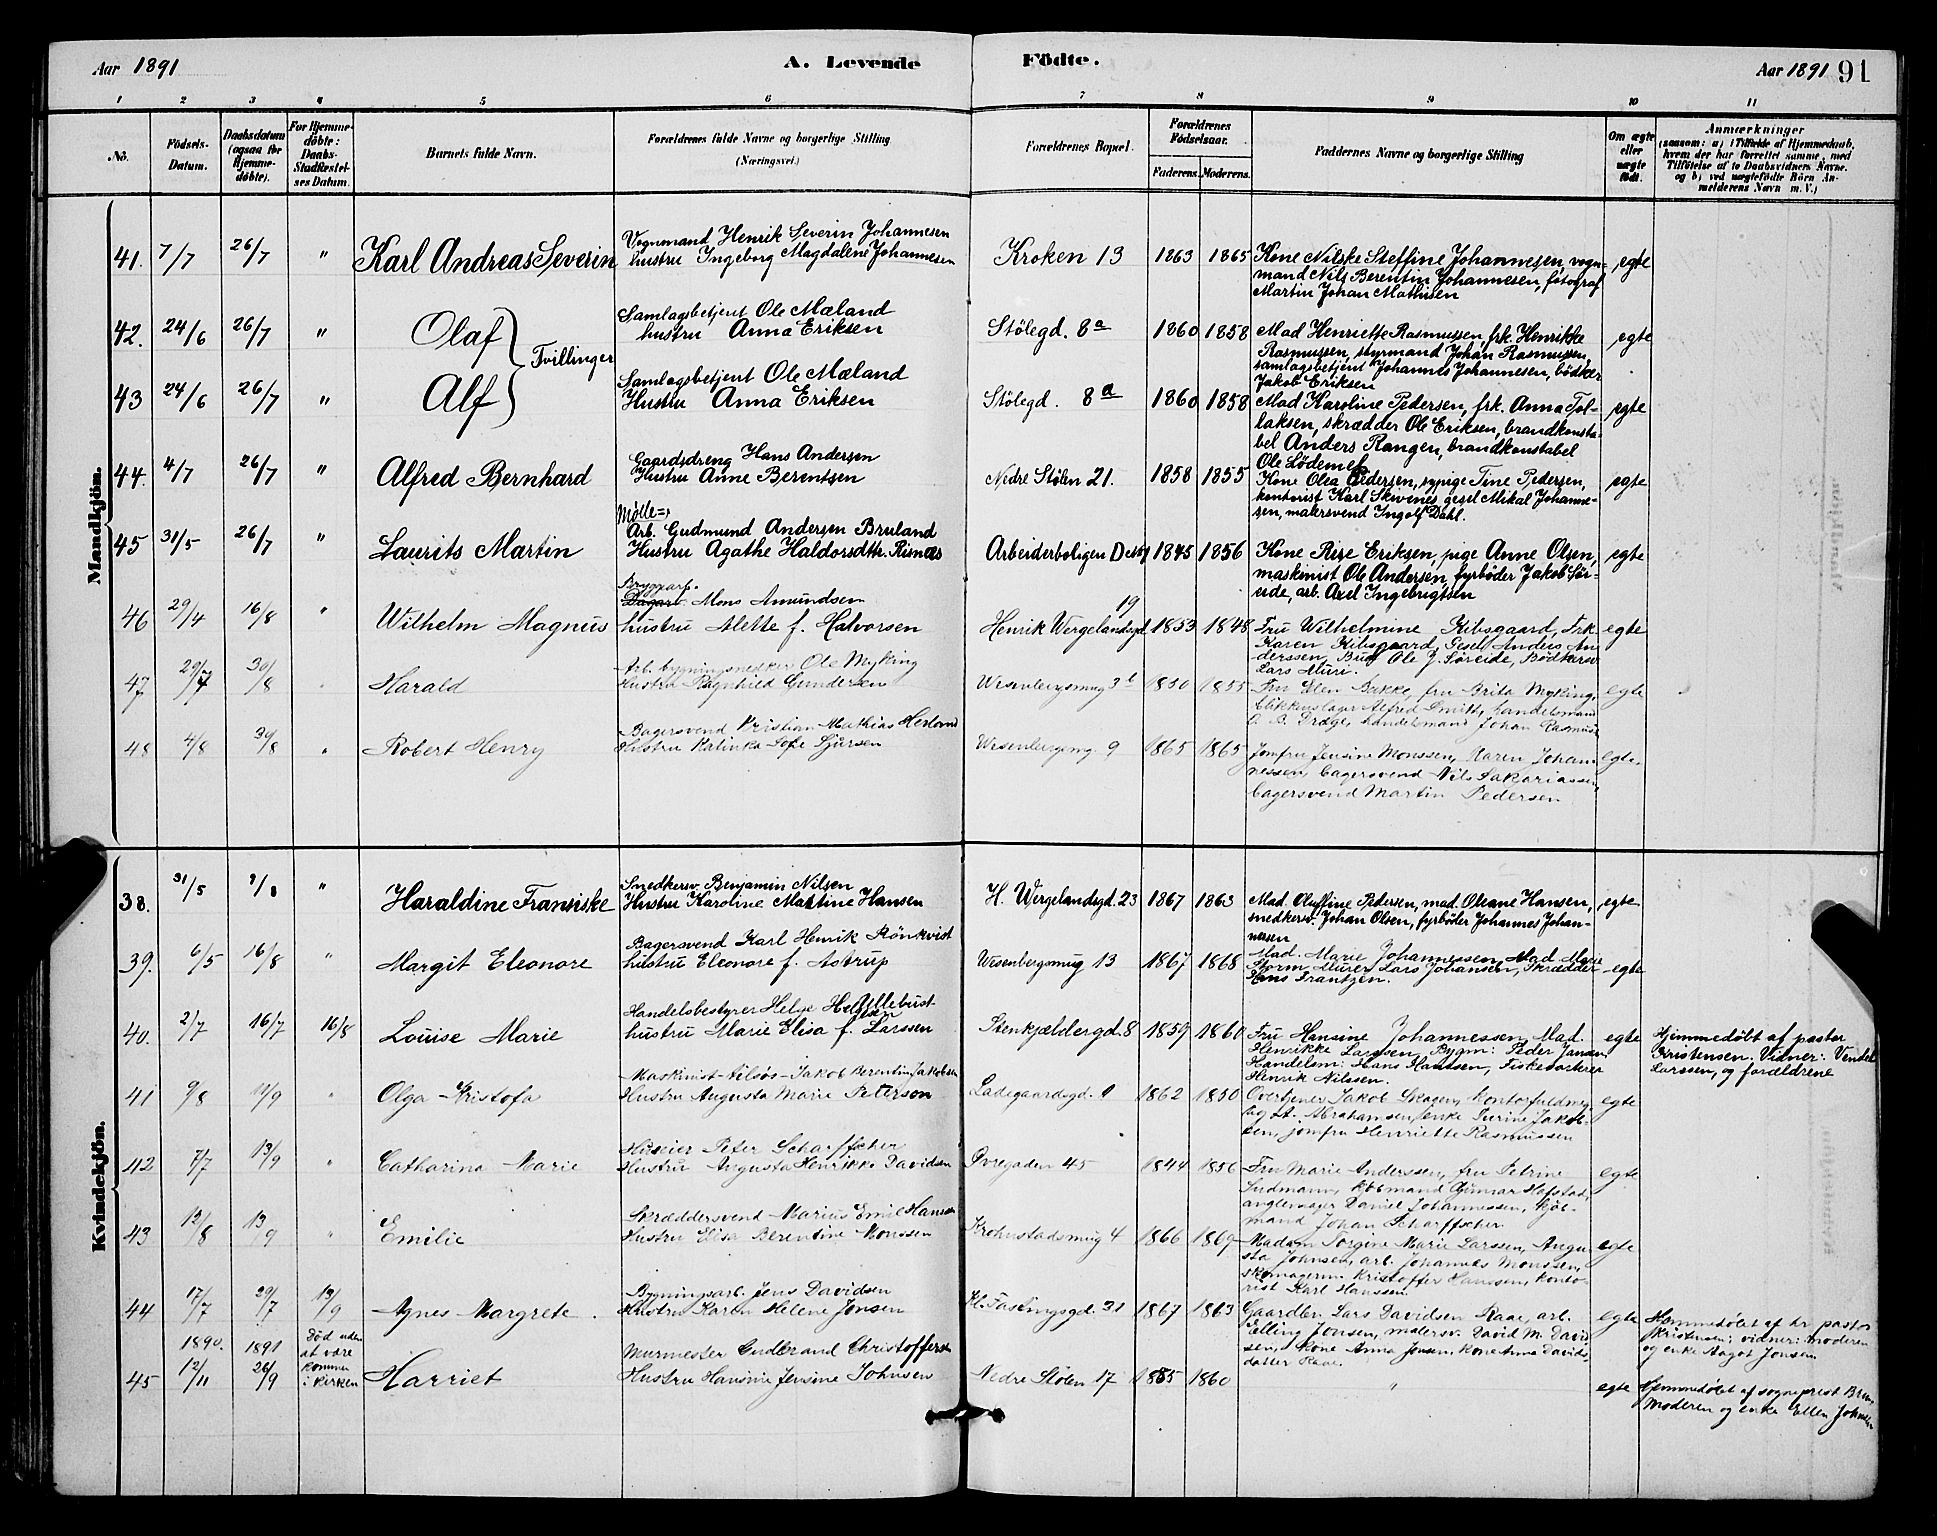 Aar 1891
A. Levende Födte.
Aar 1891 91
1 2 3 4 5 6 7 8 9 10 11
No.
Födsels-Datum.
Daabsdatum (ogsaa for Hjemmedöbte).
For Hjemmedöbte: Daabs-Stadfæstelses Datum.
Barnets fulde Navn.
Forældrenes fulde Navne og borgerlige Stilling (Næringsvei.)
Forældrenes Bopæl.
Forældrenes Födselsaar.
Faderens. Moderens.
Faddernes Navne og borgerlige Stilling
Om ægte eller uægte födt.
Anmærkninger
(saasom: a) i Tilfælde af Hjemmedaab, hvem der har forrettet samme, med Tilföielse af to Daabsvidners Navne, og b) ved uægtefödte Börn Anmelderens Navn m. V.)
Mandkjön.
41. 7/7 26/7 " Karl Andreas Severin
Vognmand Henrik Severin Johannesen
hustru Ingeborg Magdalene Johannesen
Kroken 13 1863 1865
Kone Nilske Steffine Johannesen, vogn-
mand Nils Berentin Johannesen, fotograf
Martin Johan Mathisen
egte
42. 24/6 26/7 " Olaf Tvillinger
Samlagsbetjent Ole Mæland
hustru Anna Eriksen
Stölegd. 8a 1860 1858
Mad Henriette Rasmussen, frk. Henrikke
Rasmussen, styrmand Johan Rasmussen,
samlagsbetjent Johannes Johannesen, bödker
Jakob Eriksen
egte
43 24/6 26/7 " Alf
Samlagsbetjent Ole Mæland
Hustru Anna Eriksen
Stölegd. 8a 1860 1858
Mad Karoline Pedersen, frk. Anna Tol-
laksen, skrædder Ole Eriksen, brandkonsta-
bel Anders Rangen, brandkonstabel
Ole Lödemel
egte
44. 4/7 26/7 " Alfred Bernhard
Gaardsdreng Hans Andersen
Hustru Anne Berentsen
Nedre Stölen 21. 1858 1855
Kone Olea Pedersen, sypige Tine Pedersen,
kontorist Karl Skivenes gesel Mikal Johanne-
sen, malersvend Ingolf Dahl.
egte
45 31/5 26/7 " Laurits Martin
Mölle=
Arb. Gudmund Andersen Bruland
Hustru Agathe Haldorsdtr. Risnæs
Arbeiderboligen 1845 1856
Kone Rise Eriksen, pige Anne Olsen,
maskinist Ole Andersen, fyrböder Jakob Sör-
eide, arb. Axel Ingebrigtsen
egte
46 29/4 16/8 " Wilhelm Magnus
Bryggarb.
Dagarb. Mons Amundsen
hustru Alette f. Halvorsen
Henrik Wergelandsgd 19 1853 1848
Fru Wilhelmine Kibsgaard, Frk
Karen Kibsgaard, Gesel Anders An-
derssen, Bud Ole J. Söreide, Bödkersv
Lars Muri.
egte
47 29/7 30/8 " Harald
Arb. bygningsnedker Ole Myking
Hustru Ragnhild Gundersen
Wesenbergsmug 3b 1850 1855
Fru Elen Bakke, fru Brita Myking,
blikkenslager Alfred Smitt, handelsmand
O. B. Dræge, handelsmand Johan Rasmuss
egte
48 4/8 30/8 " Robert Henry
Bagersvend Kristian Mathias Herland
Hustru Kalinka Sofie Sjursen
Wesenbergsmg. 9 1865 1865
Jomfru Jensine Monssen, Maren Johan-
nessen, bagersvend Nils Sakariassen,
bagersvend Martin Pedersen
egte.
Kvindekjön.
38. 31/5 " Haraldine Fransiske
Snedkersv. Benjamin Nilsen
Hustru Karoline Martine Hansen
H. Wergelandsgd. 23 1867 1863
Mad. Oluffine Pedersen, mad. Oleane Hansen,
snedkersv. Johan Olsen, fyrböder Johannes Johan-
nessen
egte
39. 6/5 16/8 " Margit Eleonore
Bagersvend Karl Henrik Rönkvist
hustru Eleonore f. Astrup
Wesenbergsmug 13 1867 1868
Mad. Marie Johannessen, Mad Marie
Storm, Murer Lars Johansen, Skrædder
Hans Frantzen.
egte
40. 2/7 16/7 16/8 Louise Marie
Handelsbestyrer Helge Hellebust
hustru Marie Elisa f. Larssen
Stenkjeldergd. 8 1859 1860
Fru Hansine Johannessen, Mad.
Henrikke Larssen, Bygm: Peder Jansen
Handelsm: Hans Hanssen, Fiskesorterer
Henrik Nilssen.
egte
Hjemmedøbt af pastor
Kristensen. Vidner: Vendel
Larssen, og forældrene
41 9/8 11/9 " Olga Kristofa
Maskinist Jakob Berentin Jakobsen
Hustru Augusta Marie Peterson
Ladegaardsgd. 9 1862 1850
Overtjener Jakob Skagen, kontorfuldmæg-
tig A. Abrahamsen, enke Purine Jakob-
sen, jomfru Henriette Rasmussen
egte
42 7/7 13/9 " Catharina Marie
Huseier Peter Scharffscher
Hustru Augusta Henrikke Davidsen
Øvregaden 45 1844 1856
Fru Marie Anderssen, fru Petrine
Sudmann, kjöbmand Gunnar Hofstad,
anglemager Daniel Johannessen, kjöb-
mand Johan Scharffscher
egte
43 12/8 13/9 " Emilie
Skræddersvend Marius Emil Hansen
Hustru Elisa Berentine Monssen
Krohnstadsmug 4 1866 1869
Madam Torgine Marie Larssen, Augu-
sta Johnsen, arb. Johannes Monssen,
skomagerm. Kristoffer Hanssen, konto-
rist Karl Hanssen
egte
44 17/7 29/7 13/9 Agnes Margrete.
Bygningsarb. Jens Davidsen
Hustru Karen Helene Jensen
Kl. Fastingsgd. 31 1867 1863
Gaardbr. Lars Davidsen Raae, arb.
Elling Jonsen, malersv. David M. David-
sen, kone Anna Jonsen, kone Anna Davids-
datter Raae.
egte
Hjemmedøbt af hr pastor
Kristensen; vidner: moderen
og enke Aagot Jonsen
45 1890. 12/11 1891 26/9 Död uden at være kommen i kirken
Harriet
Murmester Gudbrand Christoffersen
Hustru Hansine Jensine Johnsen
Nedre Stölen 17 1855 1860 "
egte
Hjemmedøbt af sogneprest Brun
Moderen og enke Ellen Johnsen